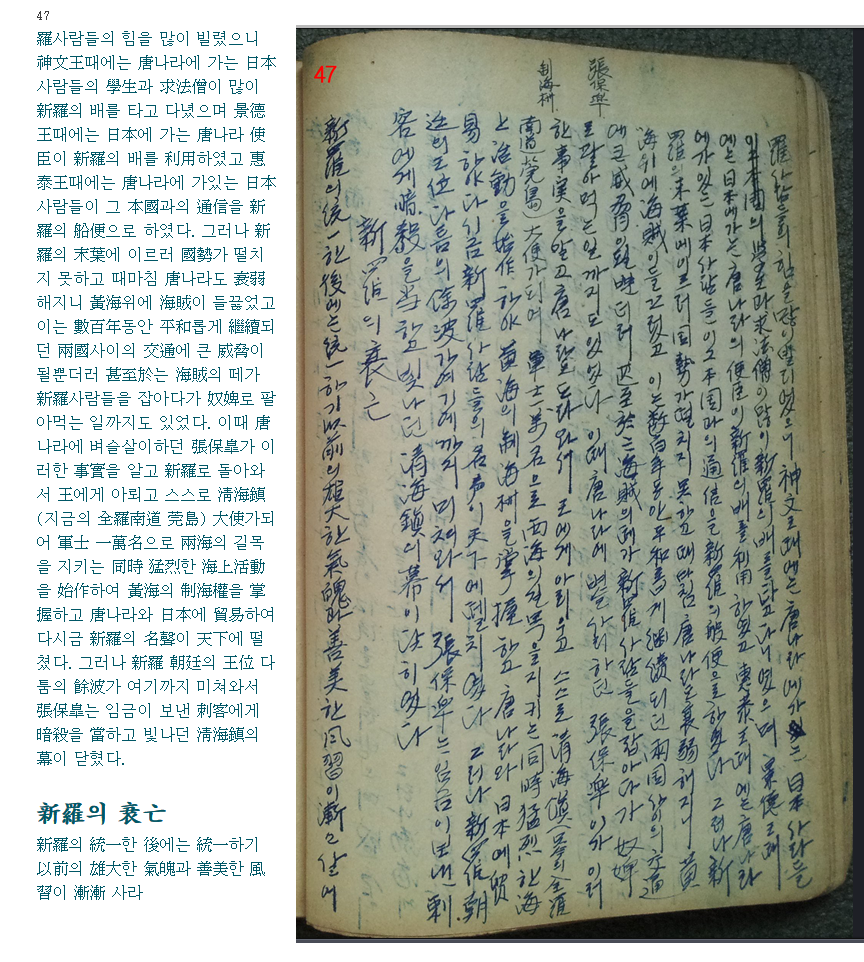 47
羅사람들의 힘을 많이 빌렸으니
神文王때에는 唐나라에 가는 日本
사람들의 學生과 求法僧이 많이
新羅의 배를 타고 다녔으며 景德
王때에는 日本에 가는 唐나라 使
臣이 新羅의 배를 利用하였고 惠
泰王때에는 唐나라에 가있는 日本
사람들이 그 本國과의 通信을 新
羅의 船便으로 하였다. 그러나 新
羅의 末葉에 이르러 國勢가 떨치
지 못하고 때마침 唐나라도 衰弱
해지니 黃海위에 海賊이 들끓었고
이는 數百年동안 平和롭게 繼續되
던 兩國사이의 交通에 큰 威脅이
될뿐더러 甚至於는 海賊의 떼가
新羅사람들을 잡아다가 奴婢로 팔
아먹는 일까지도 있었다. 이때 唐
나라에 벼슬살이하던 張保皐가 이
러한 事實을 알고 新羅로 돌아와
서 王에게 아뢰고 스스로 淸海鎭
(지금의 全羅南道 莞島) 大使가되
어 軍士 一萬名으로 兩海의 길목
을 지키는 同時 猛烈한 海上活動
을 始作하여 黃海의 制海權을 掌
握하고 唐나라와 日本에 貿易하여
다시금 新羅의 名聲이 天下에 떨
쳤다. 그러나 新羅 朝廷의 王位 다
툼의 餘波가 여기까지 미쳐와서
張保皐는 임금이 보낸 刺客에게
暗殺을 當하고 빛나던 淸海鎭의
幕이 닫혔다.
新羅의 衰亡
新羅의 統一한 後에는 統一하기
以前의 雄大한 氣魄과 善美한 風
習이 漸漸 사라
47
張保皐
制海權
羅사람들의 힘을 많이 빌리었으니 神文王때에는 唐나라에가는 日本 사람들
이本國의 學生과 求法僧이 많이 新羅의 배를 타고 다니었으며 景德王때
에는 日本에가는 唐나라의 使臣이 新羅의 배를 利用하였고 惠泰王때에는 唐나라
에가있는 日本사람들이 그本国과의 通信을 新羅의 船便으로 하였다 그러나 新
羅의 末葉에이르러 国勢가떨치지 못하고 때마침 唐나라도 衰弱해지니 黃
海위에 海賊이들끌었고 이는 数百年동안 平和롭게 継續되던 兩国사이의 交通
에큰 威脅이될뿐더러 甚至於는 海賊의떼가 新羅사람들을 잡아다가 奴婢
로팔아먹는 일까지도 있었다 이때 唐나라에 벼슬사리하던 張保皐이가 이러
한 事実을 알고 唐나라로 도라와서 王에게 스스로 淸海鎭(의 全羅
南道 莞島) 大使가되어 軍士一萬名으로 西海의길목을지키는 同時 猛烈한 海
上活動을 始作하야 黃海의 制海權을 掌握하고 唐나라와 日本에 貿
易하야 다시금 新羅사람들의 名声이 天下에떨치였다 그러나 新羅朝
廷의 王位다틈의 余波가여기에까지 미쳐와서 張保皐는 임금이보낸 刺
客에게 暗殺을 当하고 빛나던 淸海鎭의 幕이닫히였다
新羅의 衰亡
新羅의 統一한 後에는 統一하기 以前의 雄大한 氣魄과 善美한 風習이 漸々 살어